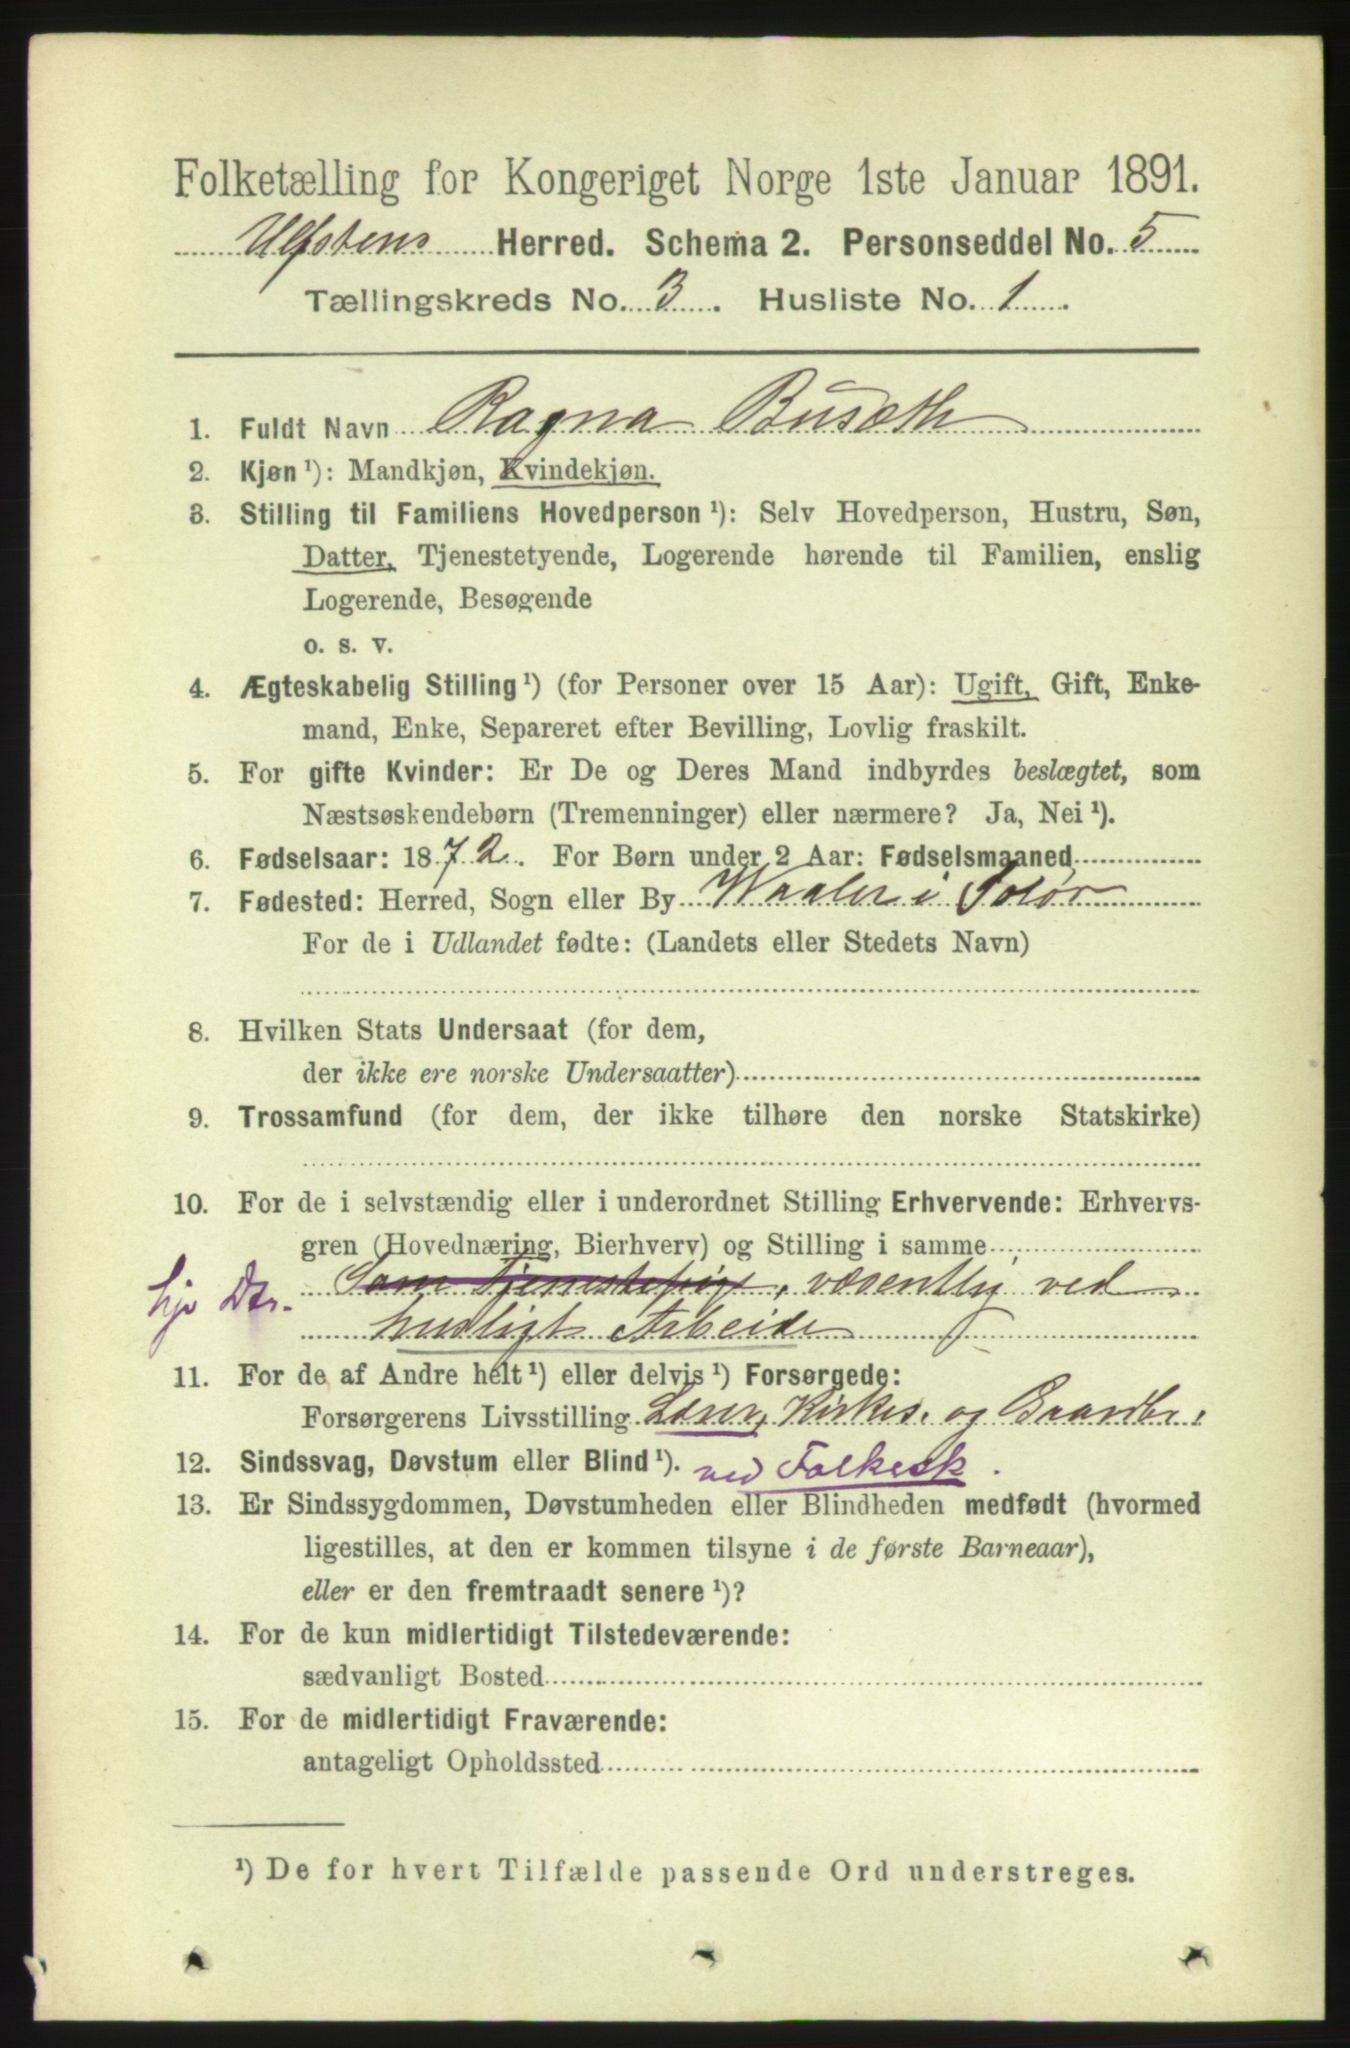 Folketælling for Kongeriget Norge 1ste Januar 1891.
Ulfstens Herred. Schema 2. Personseddel No. 5
Tællingskreds No. 3. Husliste No. 1.
1. Fuldt Navn Ragna Busæth
2. Kjøn ¹): Mandkjøn, Kvindekjøn.
3. Stilling til Familiens Hovedperson ¹): Selv Hovedperson, Hustru, Søn,
Datter, Tjenestetyende, Logerende hørende til Familien, enslig
Logerende, Besøgende
o. s. v.
4. Ægteskabelig Stilling ¹) (for Personer over 15 Aar): Ugift, Gift, Enke-
mand, Enke, Separeret efter Bevilling, Lovlig fraskilt.
5. For gifte Kvinder: Er De og Deres Mand indbyrdes beslægtet, som
Næstsøskendebørn (Tremenninger) eller nærmere? Ja, Nei ¹).
6. Fødselsaar: 1872. For Børn under 2 Aar: Fødselsmaaned
7. Fødested: Herred, Sogn eller By Waaler i Solør
For de i Udlandet fødte: (Landets eller Stedets Navn)
8. Hvilken Stats Undersaat (for dem,
der ikke ere norske Undersaatter)
9. Trossamfund (for dem, der ikke tilhøre den norske Statskirke)
10. For de i selvstændig eller i underordnet Stilling Erhvervende: Erhvervs-
gren (Hovednæring, Bierhverv) og Stilling i samme
hjv Dtr. Som Tjenestepige, væsentlig ved
husligt Arbeide
11. For de af Andre helt ¹) eller delvis ¹) Forsørgede:
Forsørgerens Livsstilling Lærer, Kirkes. og Gaardbr.
12. Sindssvag, Døvstum eller Blind ¹). ved Folkesk.
13. Er Sindssygdommen, Døvstumheden eller Blindheden medfødt (hvormed
ligestilles, at den er kommen tilsyne i de første Barneaar),
eller er den fremtraadt senere ¹)?
14. For de kun midlertidigt Tilstedeværende:
sædvanligt Bosted
15. For de midlertidigt Fraværende:
antageligt Opholdssted
¹) De for hvert Tilfælde passende Ord understreges.